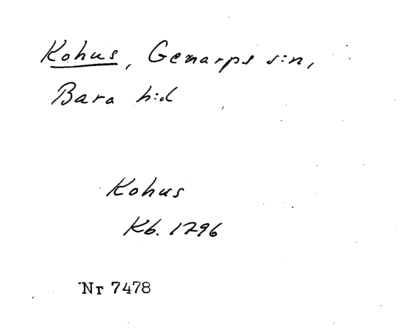 Kohus, Genarps s:n,
Bara h:d
Kohus
Kb. 1296
Nr 7478